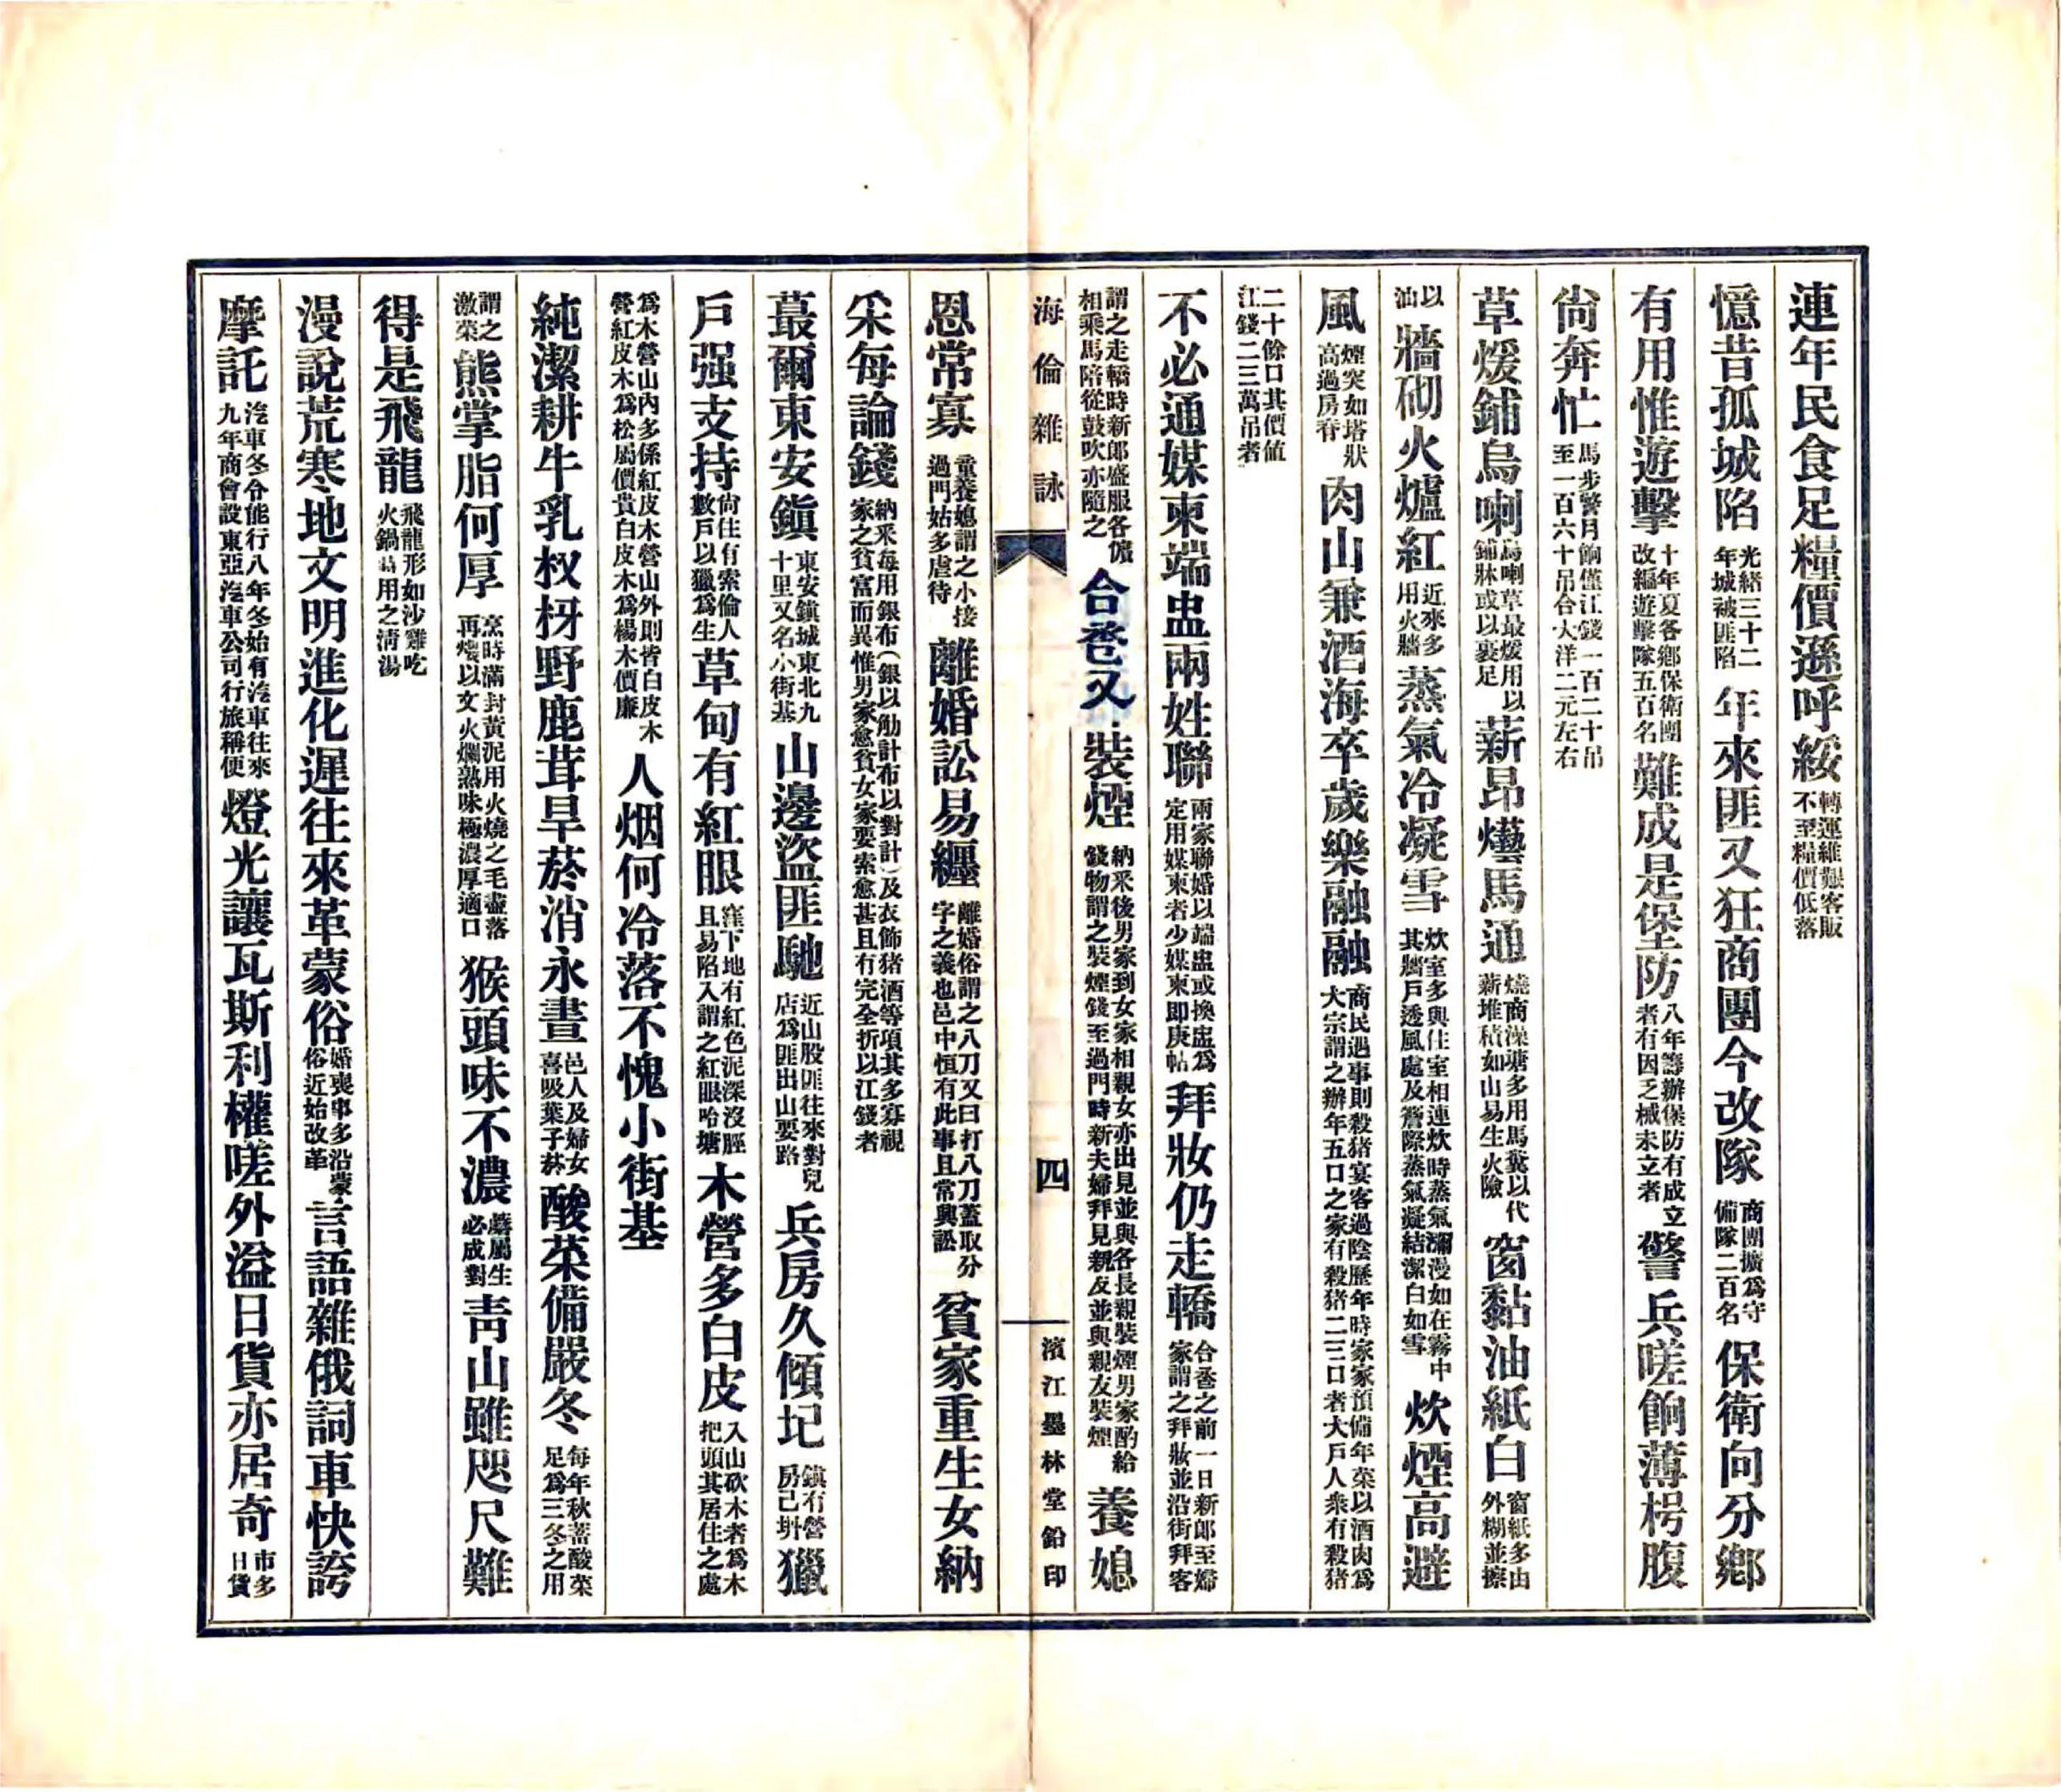 連年民食足糧價遜呼綏轉運維艱客販不至糧價低落
憶昔孤城陷光緒三十二年城被匪陷年來匪又狂商團今改隊商團擴爲守備隊二百名保衛向分鄉
有用惟遊擊十年夏各鄉保衛團改編遊擊隊五百名難成是堡防八年籌辦堡防有成立者有因乏械未立者警兵嗟餉薄枵腹
尙奔忙馬步警月餉僅江錢一百二十吊至一百六十吊合大洋二元左右
草煖鋪烏喇烏喇草最煖用以鋪牀或以裹足薪昂爇馬通燒商澡塘多用馬糞以代薪堆積如山易生火險窗黏油紙白窗紙多由外糊並擦
以油牆砌火爐紅近來多用火牆蒸氣冷凝雪炊室多與住室相連炊時蒸氣瀰漫如在霧中其牆戶透風處及簷際蒸氣凝結潔白如雪炊煙高避
風煙突如塔狀高過房脊肉山兼酒海卒歲樂融融商民遇事則殺猪宴客過陰歷年時家家預備年菜以酒肉爲大宗謂之辦年五口之家有殺猪二三口者大戶人衆有殺猪
二十餘口其價値江錢二三萬吊者
不必通媒柬端盅兩姓聯兩家聯婚以端盅或換盅爲定用媒柬者少媒柬即庚帖拜妝仍走轎合巹之前一日新郞至婦家謂之拜妝並沿街拜客
謂之走轎時新郞盛服各儐相乘馬陪從鼓吹亦隨之合巹又裝煙納釆後男家到女家相親女亦出見並與各長親裝煙男家酌給錢物謂之裝煙錢至過門時新夫婦拜見親友並與親友裝煙養媳
海倫雜詠
四
濱江墨林堂鉛印
恩常寡童養媳謂之小接過門姑多虐待離婚訟易纏離婚俗謂之八刀又曰打八刀蓋取分字之義也邑中恒有此事且常興訟貧家重生女納
釆每論錢納釆每用銀布(銀以觔計布以對計)及衣飾猪酒等項其多寡視家之貧富而異惟男家愈貧女家要索愈甚且有完全折以江錢者
蕞爾東安鎭東安鎭城東北九十里又名小街基山邊盜匪馳近山股匪往來對兒店爲匪出山要路兵房久傾圮鎭有營房已坍獵
戶强支持尙住有索倫人數戶以獵爲生草甸有紅眼窪下地有紅色泥深沒脛且易陷入謂之紅眼哈塘木營多白皮入山砍木者爲木把頭其居住之處
爲木營山內多係紅皮木營山外則皆白皮木營紅皮木爲松屬價貴白皮木爲楊木價廉人烟何冷落不愧小街基
純潔耕牛乳杈枒野鹿茸旱菸消永晝邑人及婦女喜吸葉子菸酸菜備嚴冬每年秋蓄酸菜足爲三冬之用
謂之激菜熊掌脂何厚烹時滿封黃泥用火燒之毛盡落再煨以文火爛熟味極濃厚適口猴頭味不濃蘑屬生必成對靑山雖咫尺難
得是飛龍飛龍形如沙雞吃火鍋用之淸湯
漫說荒寒地文明進化遲往來革蒙俗婚喪事多沿蒙俗近始改革言語雜俄詞車快誇
摩託汽車冬令能行八年冬始有汽車往來九年商會設東亞汽車公司行旅稱便燈光讓瓦斯利權嗟外溢日貨亦居奇市多日貨